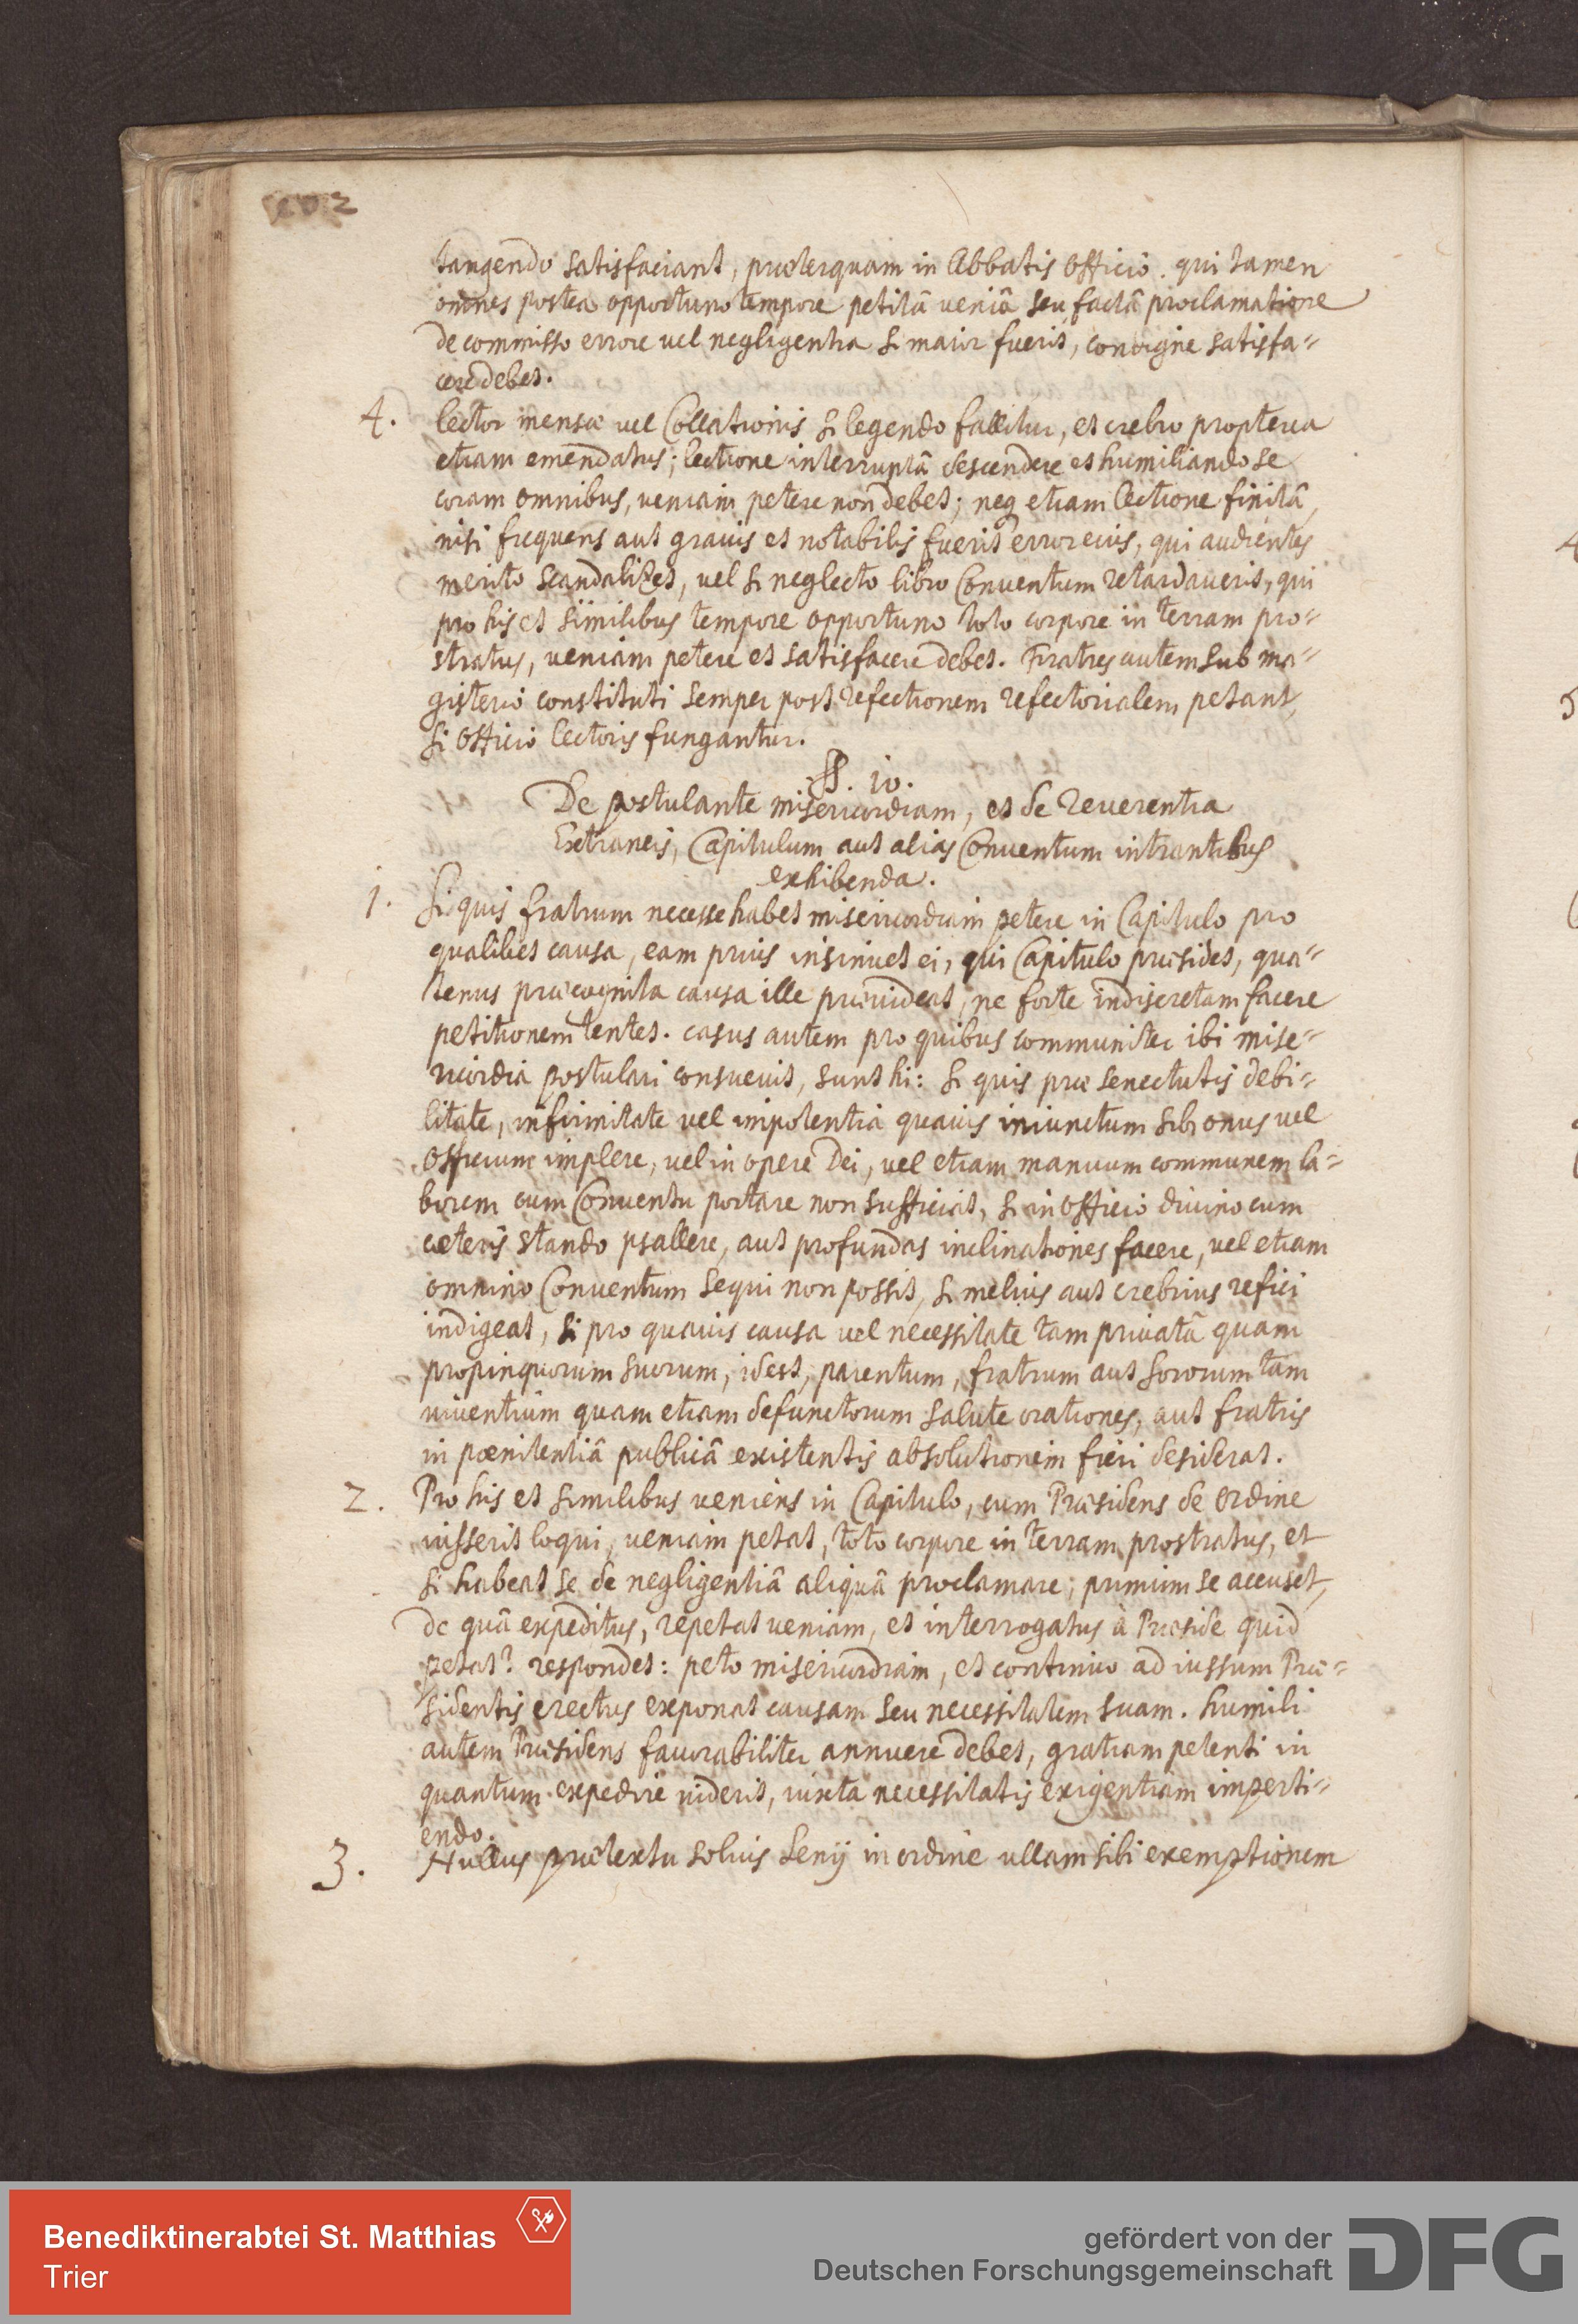 202
tangendo satisfaciant, præterquam in Abbatis Officio. qui tamen
omnes postea opportuno tempore petitâ veniâ seu factâ proclamatione
de commisso errore vel negligentia si maior fuerit, condigne satisfa-
cere debet.
4. lector mensæ vel Collationis si legendo fallitur, et crebro propterea
etiam emendatus; lectione interruptâ descendere et humiliando se
coram omnibus, veniam petere non debet; neq etiam lectione finitâ,
nisi frequens aut grauis et notabilis fuerit error eius, qui audientes
merito scandalizet, vel si neglecto libro Conuentum retardauerit, qui
pro his et similibus tempore opportuno toto corpore in terram pro-
stratus, veniam petere et satisfacere debet. Fratres autem sub ma-
gisterio constituti semper post refectionem refectorialem petant,
si Officio lectoris fungantur.
§. 10.
De postulante misericordiam, et de reuerentia
Extraneis, Capitulum aut alias Conuentum intrantibus
exhibenda.
1. Si quis fratrum necesse habet misericordiam petere in Capitulo pro
qualibet causa, eam prius insinuet ei, qui Capitulo præsidet, qua-
tenus præcognita causa ille præuideat, ne forte indiscretam facere
petitionem tentet. casus autem pro quibus communiter ibi mise-
ricordia postulari consueuit, sunt hi: si quis præ senectutis debi-
litate, infirmitate vel impotentia quauis iniunctum sibi onus vel
Officium implere, vel in opere Dei, vel etiam manuum communem la-
borem cum Conuentu portare non sufficiat, si in Officio diuino cum
cæteris stando psallere, aut profundas inclinationes facere, vel etiam
omnino Conuentum sequi non possit, si melius aut crebrius refici
indigeat, si pro quauis causa vel necessitate tam priuatâ quam
propinquorum suorum, idest, parentum, fratrum aut sororum tam
viuentium quam etiam defunctorum salute orationes, aut fratris
in pœnitentiâ publicâ existentis absolutionem fieri desiderat.
2. Pro his et similibus veniens in Capitulo, cum Præsidens de ordine
iusserit loqui, veniam petat, toto corpore in terram prostratus, et
si habeat se de negligentiâ aliquâ proclamare; primum se accuset,
de quâ expeditus, repetat veniam, et interrogatus à Præside quid
petat? respondet: peto misericordiam, et continuo ad iussum Præ-
sidentis erectus exponat causam seu necessitatem suam. humili
autem Præsidens fauorabiliter annuere debet, gratiam petenti in
quantum expedire viderit, iuxta necessitatis exigentiam imperti-
endo.
3. Nullus prætextu solius senij in ordine ullam sibi exemptionem
Benediktinerabtei St. Matthias
Trier
gefördert von der
Deutschen Forschungsgemeinschaft
DFG